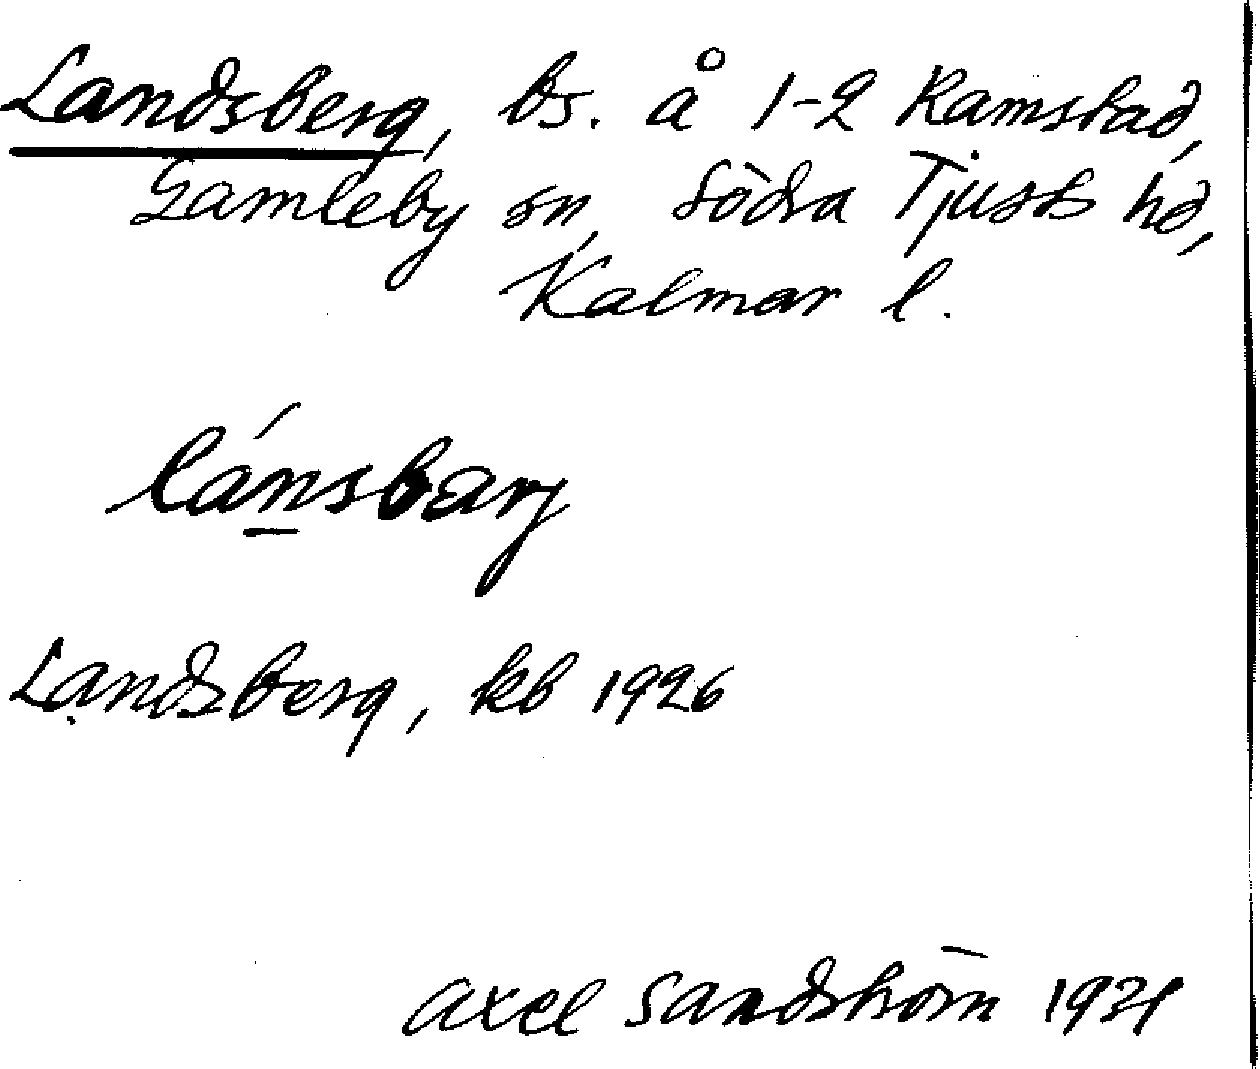 Landsberg, bs. å 1-2 Ramstad,
Gamleby sn, Södra Tjusts hd,
Kalmar l.
lánsbarj
Landsberg, kb 1926
Axel Sandström 1931